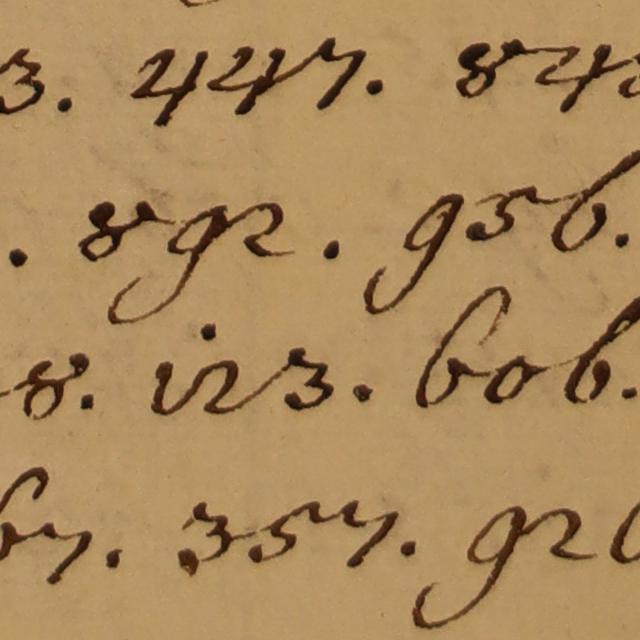 3. 447. 84
. 892. 956.
8. 123. 606.
67. 357. 92